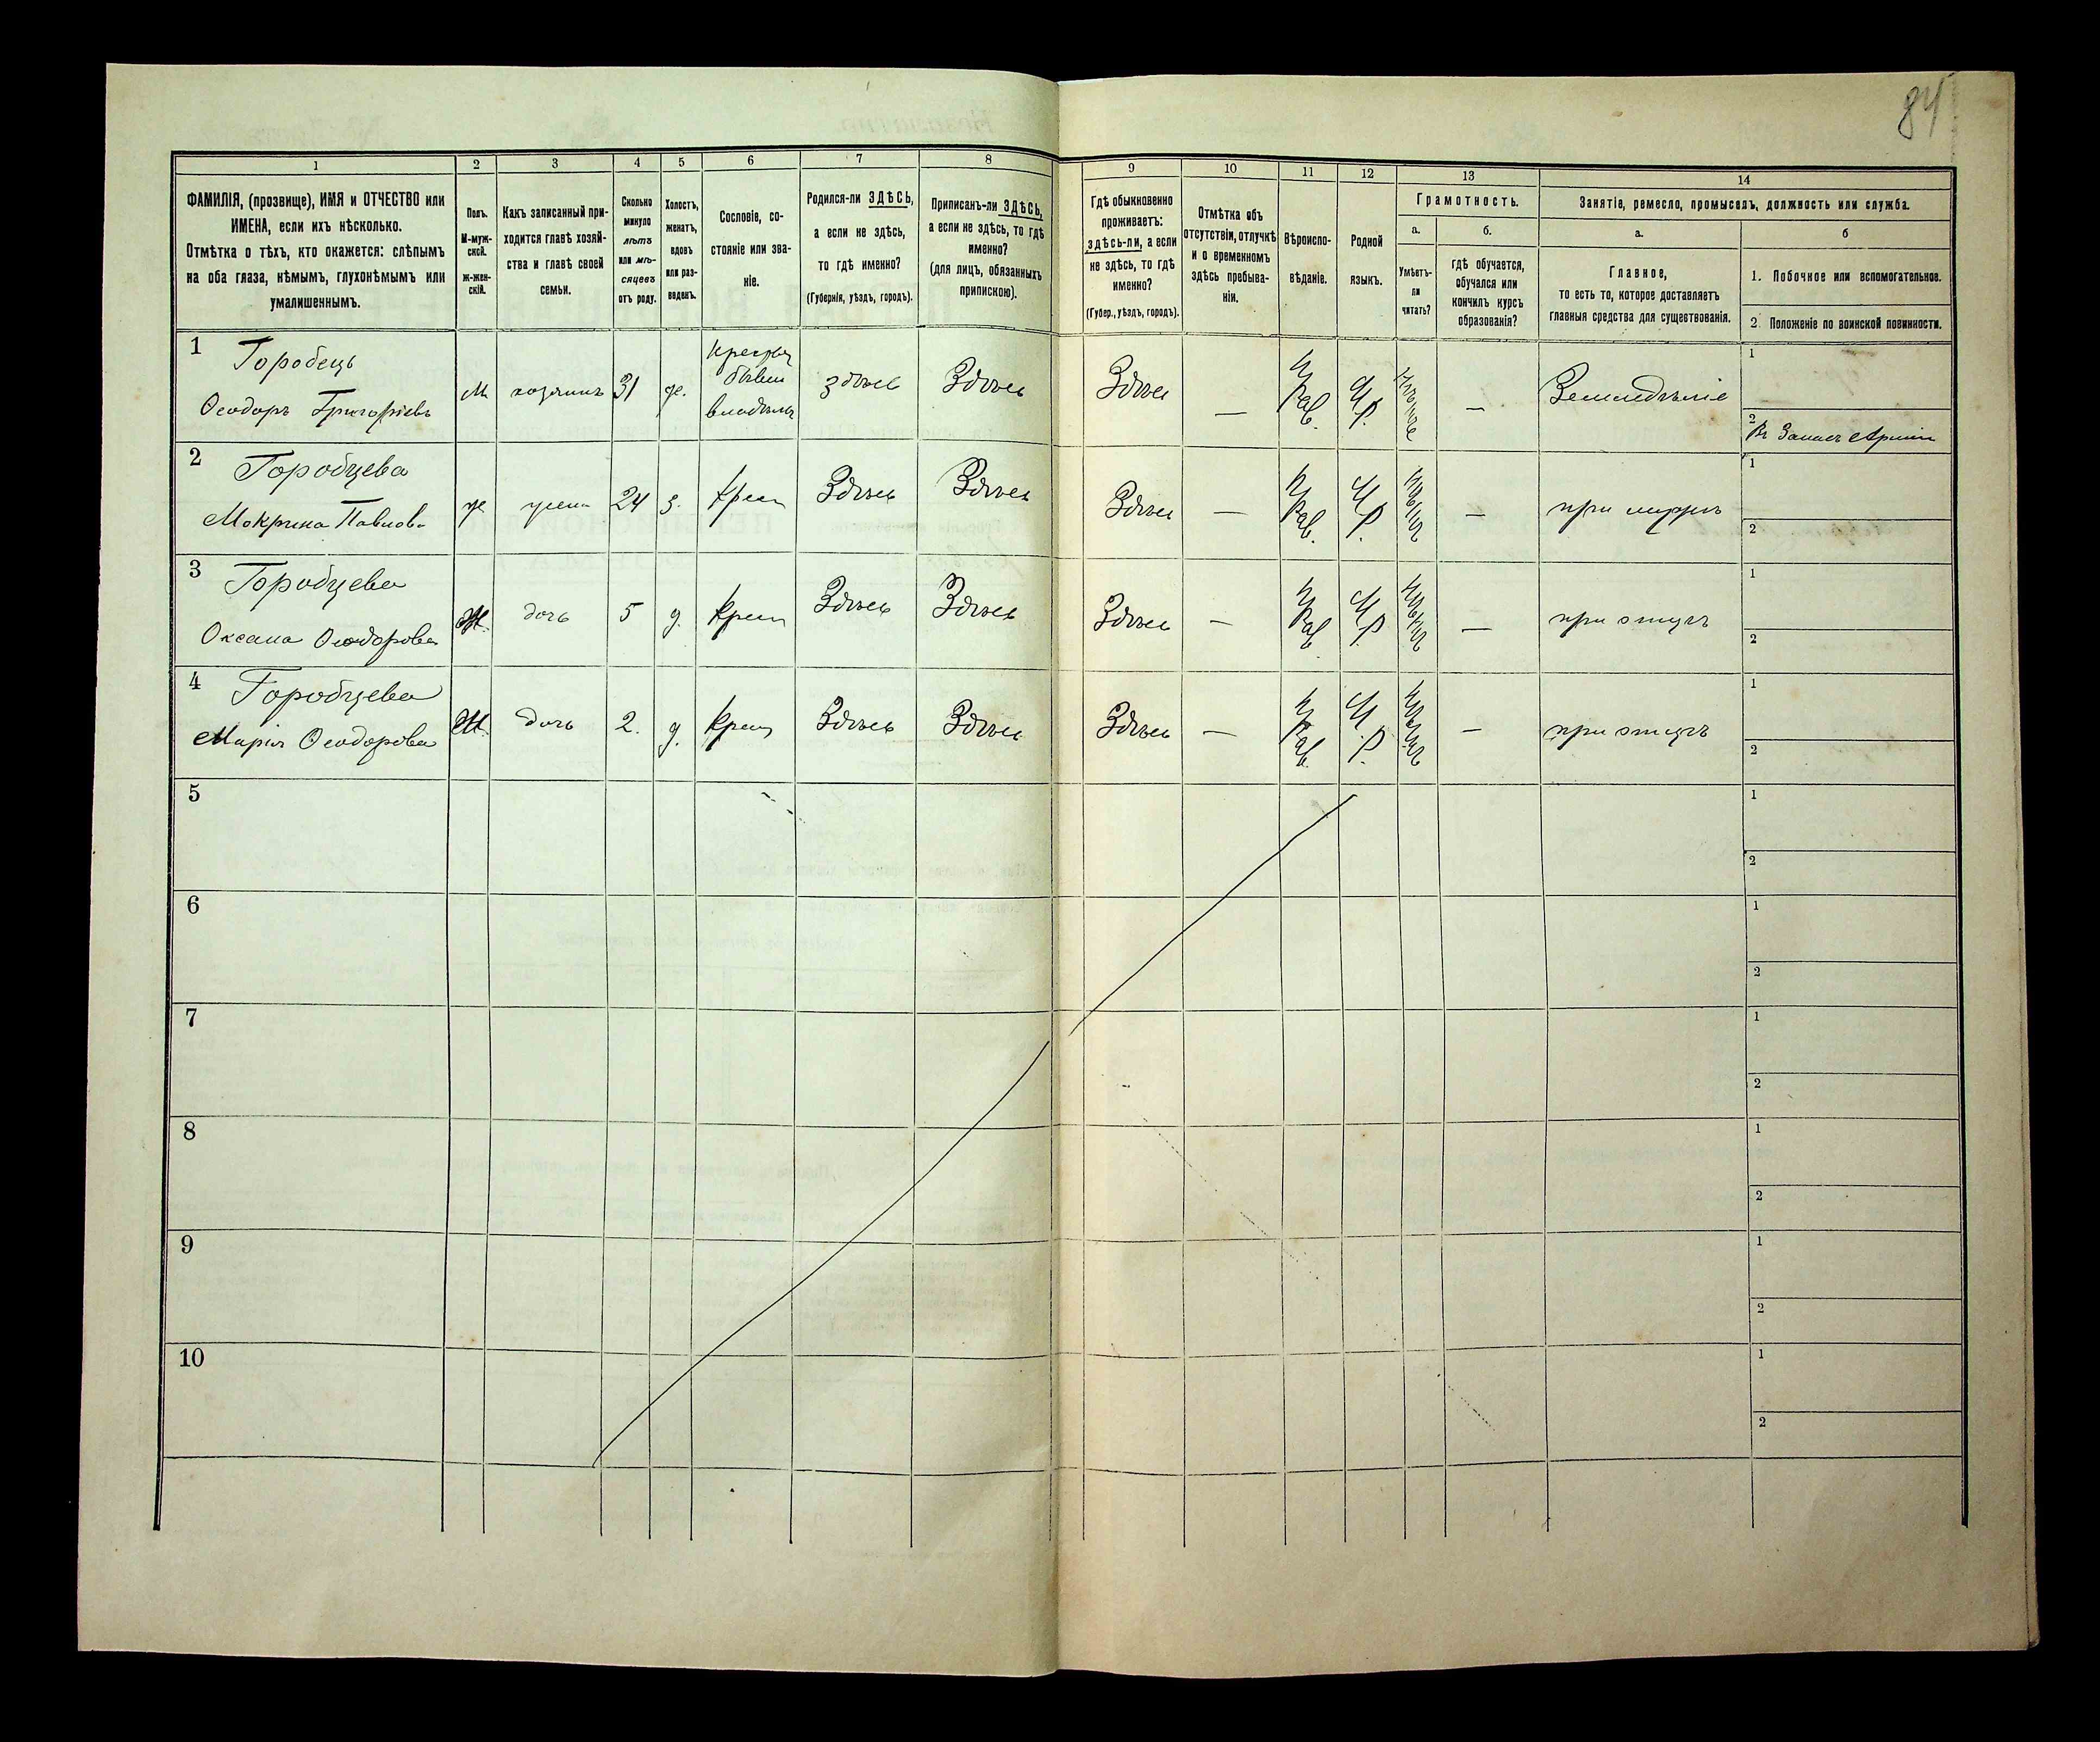 84
1
2
3
4
5
6
7
8
9
10
11
12
13
14
ФАМИЛІЯ, (прозвище), ИМЯ и ОТЧЕСТВО или
ИМЕНА, если ихъ нѣсколько.
Отмѣтка о тѣхъ, кто окажется: слѣпымъ
на оба глаза, нѣмымъ, глухонѣмымъ или
умалишеннымъ.
Полъ.
М-муж-
ской.
Ж-жен-
скій.
Какъ записанный при-
ходится главѣ хозяй-
ства и главѣ своей
семьи.
Сколько
минуло
лѣтъ
или мѣ-
сяцевъ
отъ роду.
Холостъ,
женатъ,
вдовъ
или раз-
веденъ.
Сословіе, со-
стояніе или зва-
ніе.
Родился-ли ЗДѢСЬ,
а если не здѣсь,
то гдѣ именно?
(Губернія, уѣздъ, городъ).
Приписанъ-ли ЗДѢСЬ,
а если не здѣсь, то гдѣ
именно?
(для лицъ, обязанныхъ
припискою).
Гдѣ обыкновенно
проживаетъ:
здѣсь-ли, а если
не здѣсь, то гдѣ
именно?
(Губер., уѣздъ, городъ).
Отмѣтка объ
отсутствіи, отлучкѣ
и о временномъ
здѣсь пребыва-
ніи.
Вѣроиспо-
вѣданіе.
Родной
языкъ.
Грамотность.
а.
б.
Умѣетъ-
ли
читать?
гдѣ обучается,
обучался или
кончилъ курсъ
образованія?
Занятіе, ремесло, промыселъ, должность или служба.
а.
б
Главное,
то есть то, которое доставляетъ
главныя средства для существованія.
1. Побочное или вспомогательное.
2. Положеніе по воинской повинности.
1
Городець
Ѳеодоръ Григоріевъ
М
хозяинъ
31
ж.
Крестьян
бывш
владѣльч
здѣсь
Здѣсь
Здѣсь
—
Прав.
М.Р.
—
Земледѣліе
1
2
Въ Запасѣ Арміи
2
Городцева
Мокрина Павлов.
ж
жена
24
з.
крест
Здѣсь
Здѣсь
Здѣсь
—
Прав.
М.Р.
—
при мужѣ
1
2
3
Городцева
Оксана Ѳеодорова
Ж.
дочь
5
д.
крест
Здѣсь
Здѣсь
Здѣсь
—
Прав.
М.Р.
—
при отцѣ
1
2
4
Городцева
Марія Ѳеодорова
Ж.
дочь
2.
д.
крест
Здѣсь
Здѣсь
Здѣсь
—
Прав.
М.Р.
—
при отцѣ
1
2
5
1
2
6
1
2
7
1
2
8
1
2
9
1
2
10
1
2